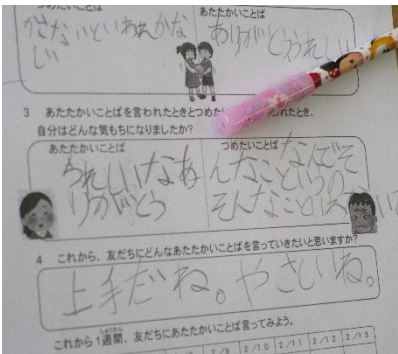 つめたいことば
あたたかいことば
かさないといわれかな
しい
ありがとううれしい
3 あたたかいことばを言われたときとつめた
られたとき、
自分はどんな気もちになりましたか?
あたたかいことば
うれしいなあ
りがとう
つめたいことば
なんでそ
んなこというの
そんなこと
4 これから、友だちにどんなあたたかいことばを言っていきたいと思いますか?
上手だね。やさしいね。
しゅうかん
これから1週間、友だちにあたたかいことばを言ってみよう。
2/9 2/10 2/11 2/12 2/13